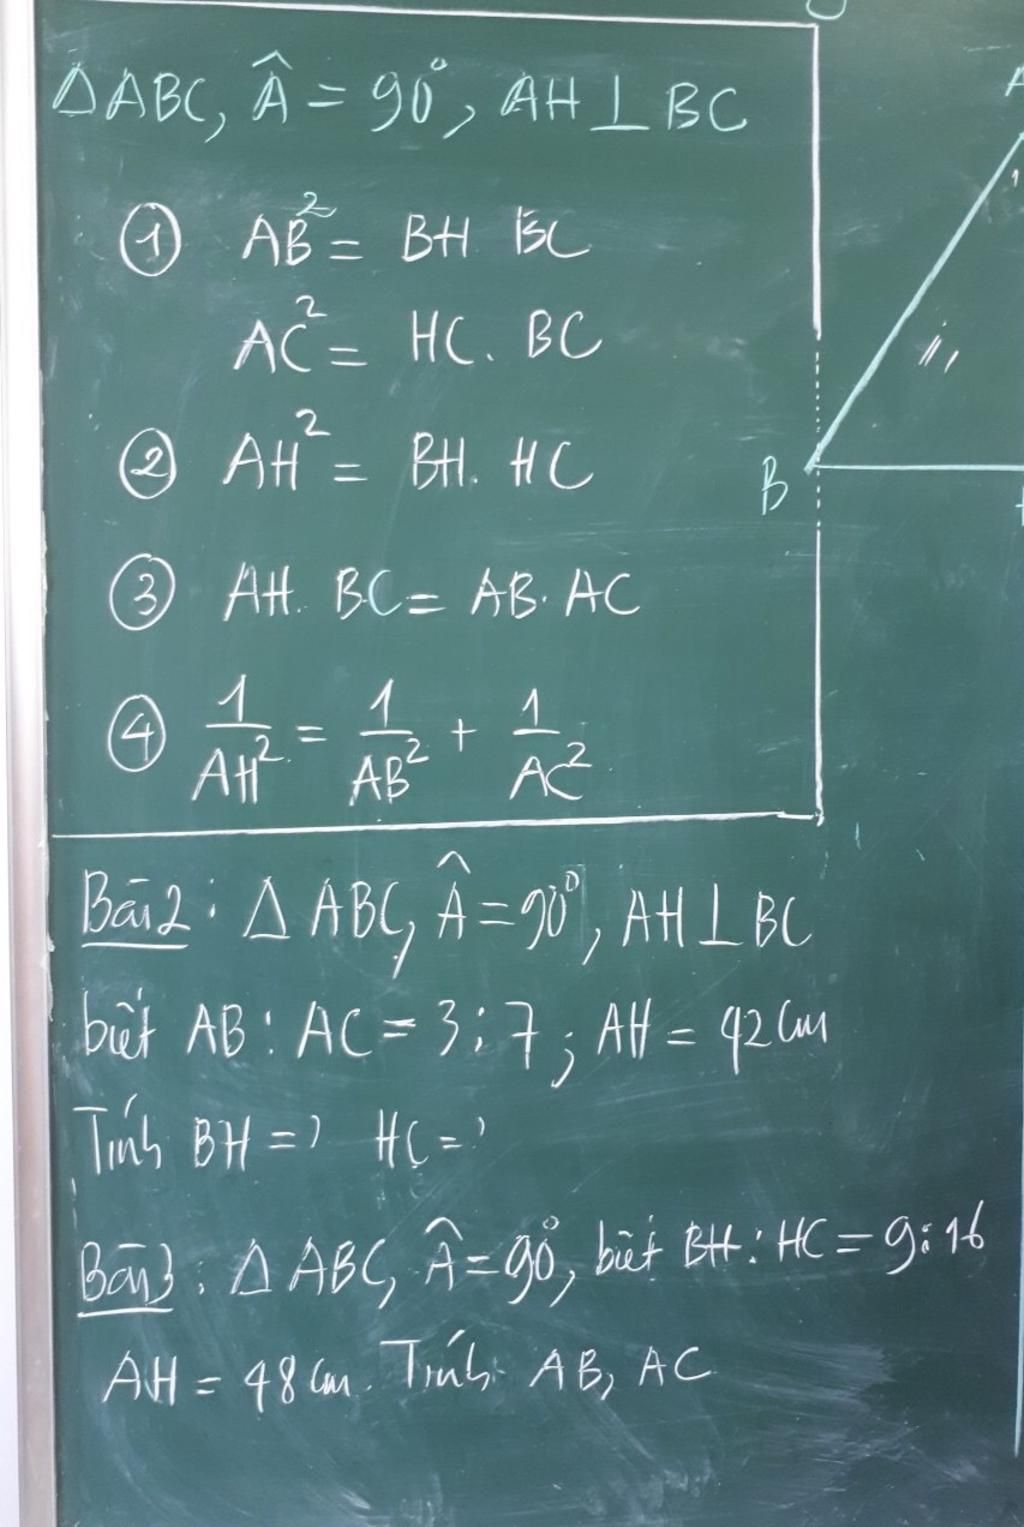 ΔABC, Â = 90°, AH ⊥ BC
① AB² = BH BC
AC² = HC. BC
② AH² = BH. HC
③ AH. BC = AB. AC
④ 1/AH² = 1/AB² + 1/AC²
B
Bài 2: Δ ABC, Â = 90°, AH ⊥ BC
biết AB : AC = 3 : 7 ; AH = 42 cm
Tính BH = ? HC = ?
Bài 3: Δ ABC, Â = 90°, biết BH : HC = 9 : 16
AH = 48 cm. Tính AB, AC